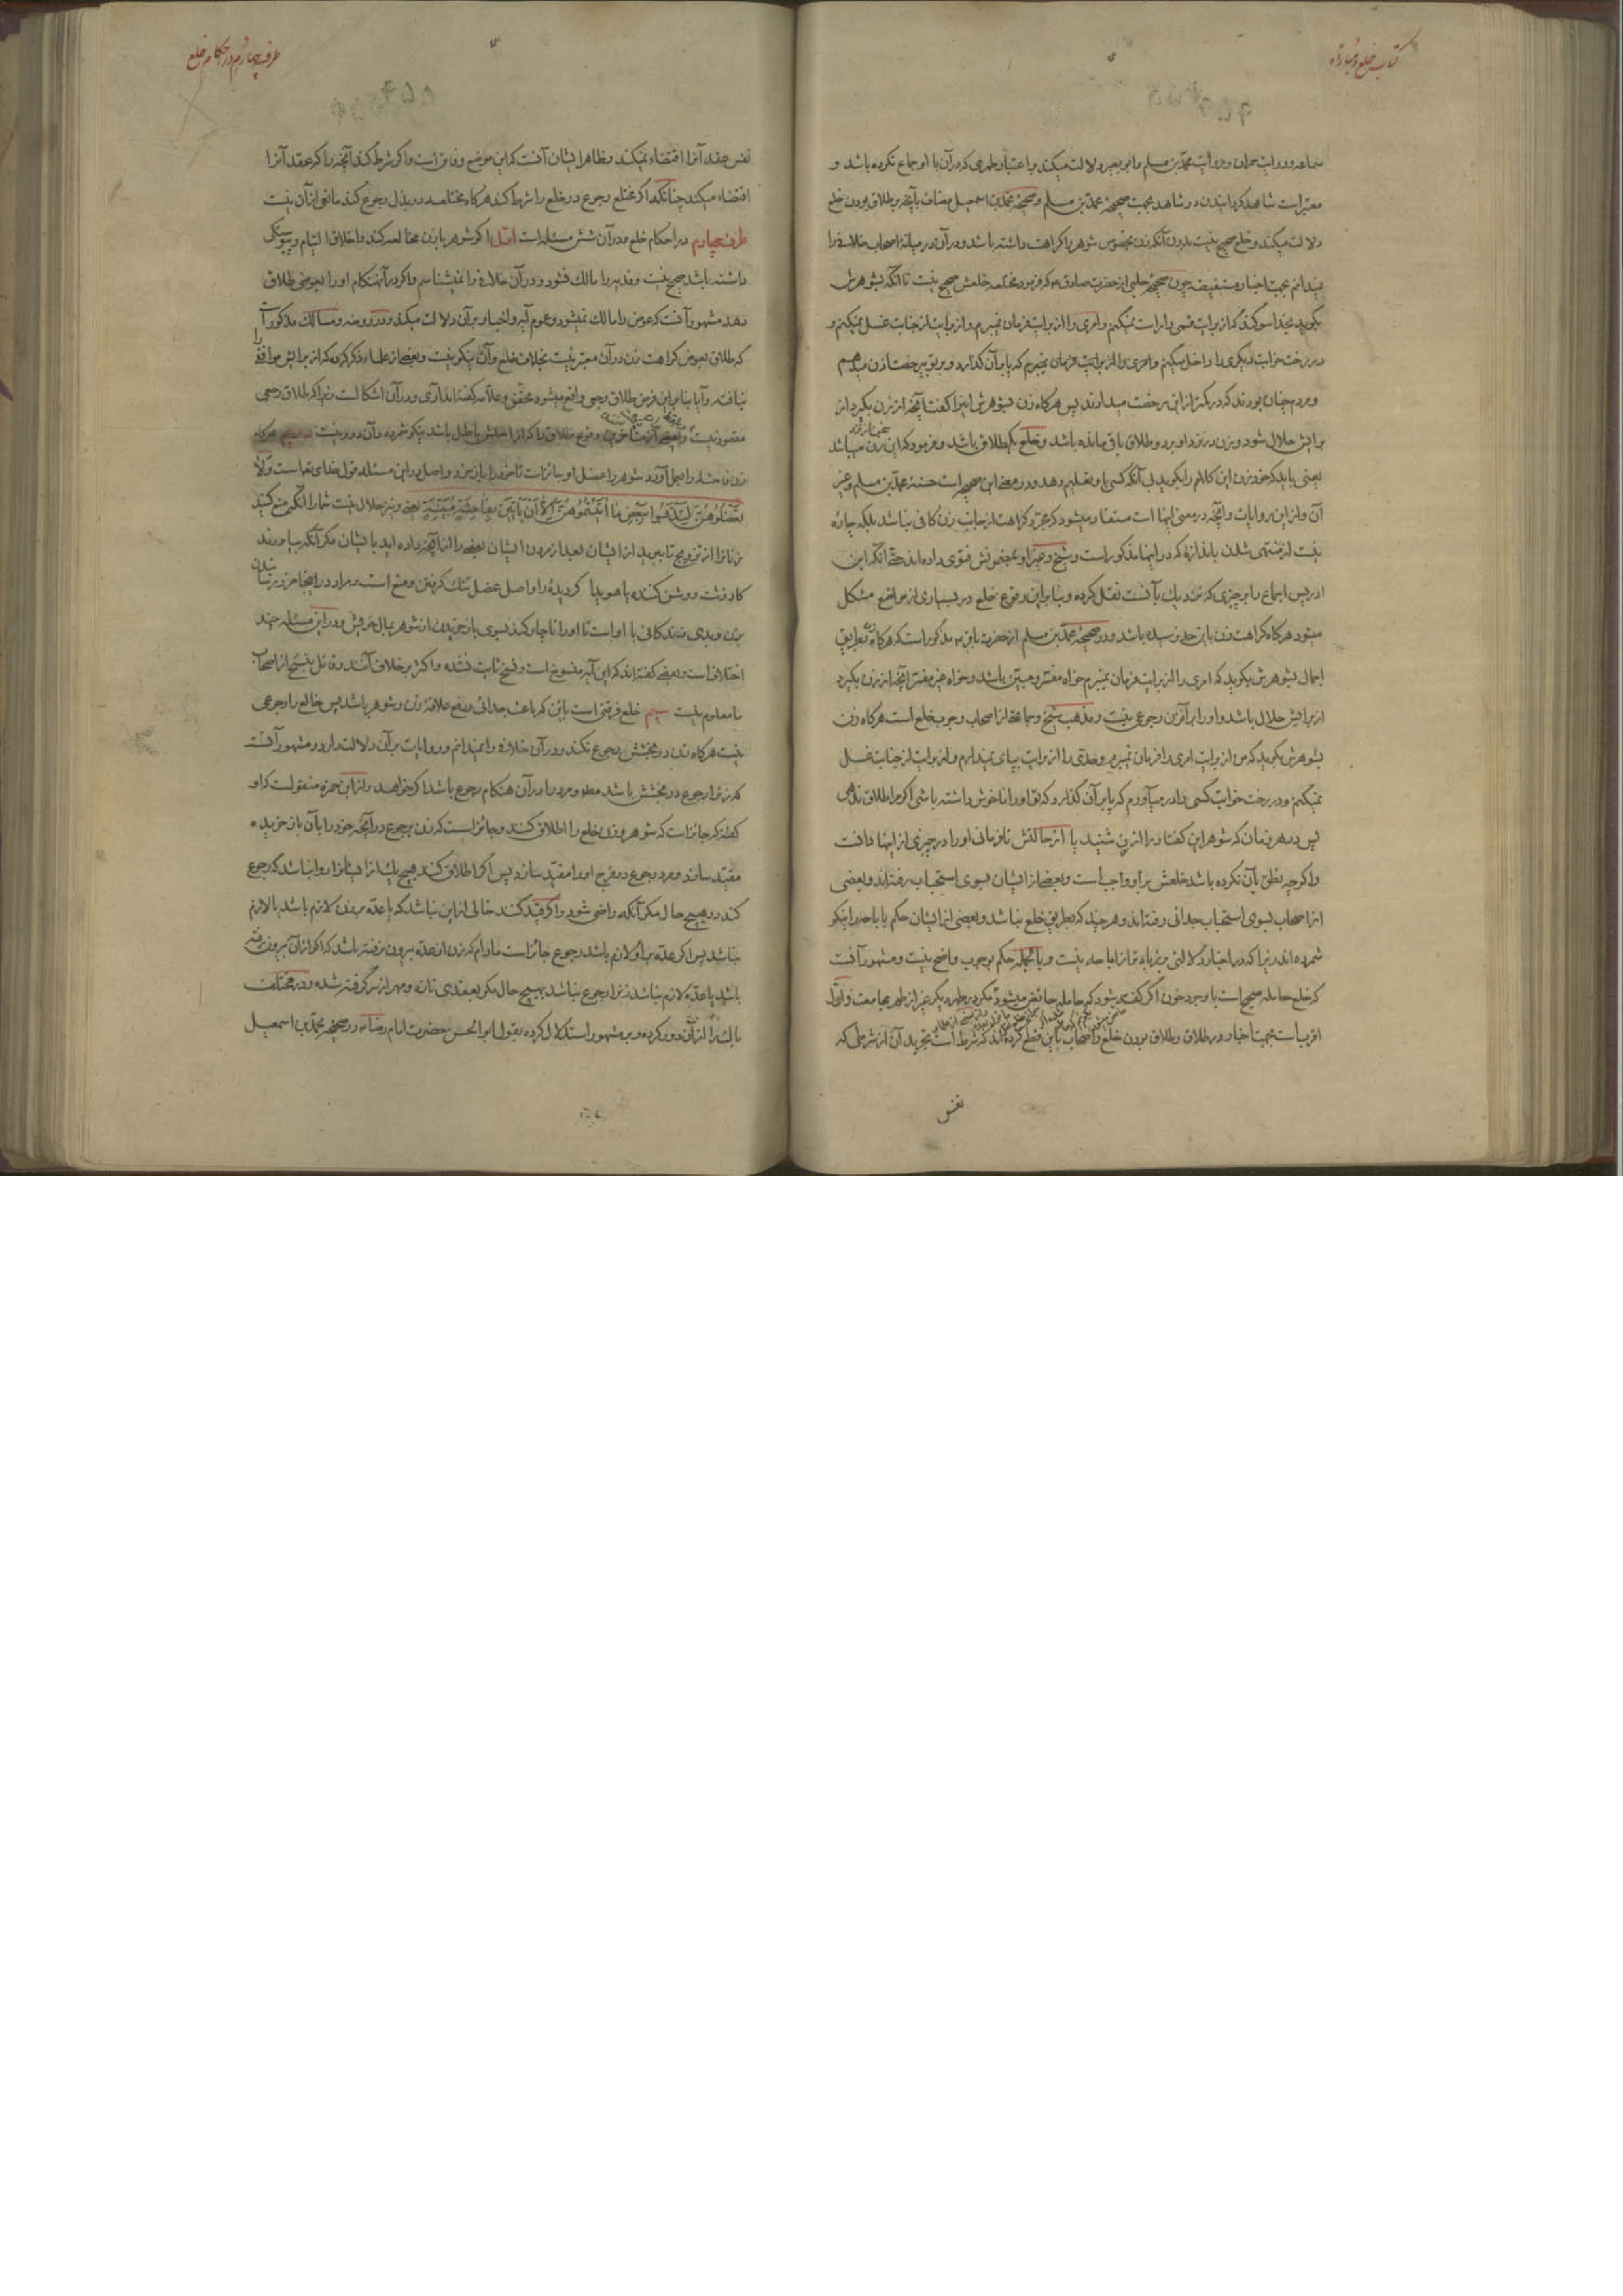 کتاب خلع و مباراة
سماعه و روایت حمران و روایت محمد بن مسلم و ابو بصیر دلالت میکند و اعتبار طهری که در آن با او جماع نکرده باشد و
معتبر است شاهد گردانیدن دو شاهد بجهت صحیحهٔ محمد بن مسلم و صحیحهٔ محمد بن اسمعیل مضاف بآنچه بر طلاق بودن خلع
دلالت میکند و خلع صحیح نیست بدون آنکه زن بخصوص شوهر را کراهت داشته باشد و در آن در میانهٔ اصحاب خلاف را
نمیدانم بجهت اخبار مستفیضه چون صحیحهٔ حلبی از حضرت صادق ع که فرمود مختلعه خلعش صحیح نیست تا آنکه بشوهرش
بگوید بخدا سوگند که از برایت قسمی را راست نمیکنم و امری را از برایت فرمان نمیبرم و از برایت از جنابت غسل نمیکنم و
در رخت خوابت دیگری را داخل میکنم و امری را از برایت فرمان نمیبرم که پا بر آن گذارد و بر تو بی رخصت اذن میدهم
و مردم چنان بودند که در کمتر از این رخصت میدادند پس هرگاه زن بشوهرش اینرا گفت آنچه از زن بگیرد از
برایش حلال شود و زن در نزد او بر دو طلاق باقی مانده باشد و خلع یک طلاق باشد و فرمود که این سخن از نزد زن میباشد
یعنی باید که خود زن این کلام را بگوید بی آنکه کسی او را تعلیم دهد و در معنی این صحیحه است حسنهٔ محمد بن مسلم و غیر
آن و از این روایات و آنچه در معنی اینها است مستفاد میشود که مجرد کراهت از جانب زن کافی نباشد بلکه چاره
نیست از منتهی شدن باندازهٔ که در اینها مذکور است و شیخ و غیر او بمضمونش فتوی داده اند حتی آنکه ابن
ادریس اجماع را بر چیزی که نزدیک بآنست نقل کرده و بنا بر این وقوع خلع در بسیاری از مواضع مشکل
میشود هرگاه کراهت زن باین حد نرسیده باشد و در صحیحهٔ محمد بن مسلم از حضرت باقر ع مذکور است که هرگاه زن بطریق
اجمال بشوهرش بگوید که امری را از برایت فرمان نمیبرم خواه مفسر و مبین باشد و خواه غیر مفسر آنچه از زن بگیرد
از برایش حلال باشد و او را بر آنزن رجوعی نیست و مذهب شیخ و جماعة از اصحاب وجوب خلع است هرگاه زن
بشوهرش بگوید که من از برایت امری را فرمان نمیبرم و حدی را از برایت بپای نمیدارم و از برایت از جنابت غسل
نمیکنم و در رخت خوابت کسی را در میآورم که پا بر آن گذارد که تو او را ناخوش داشته باشی اگر مرا طلاق ندهی
پس در هر زمان که شوهر این گفتار را از زن شنید یا از حالتش نافرمانی او را در چیزی از اینها دانست
و اگرچه نطق بآن نکرده باشد خلعش بر او واجب است و بعضی از ایشان بسوی استحباب رفته اند و بعضی
از اصحاب بسوی استحباب جدائی رفته اند و هر چند که بطریق خلع نباشد و بعضی از ایشان حکم باباحه را نیکو
شمرده اند زیرا که در اخبار دلالتی بر زیاده تر از اباحه نیست و بالجمله حکم بوجوب واضح نیست و مشهور آنست
که خلع حامله صحیح است با وجود خون اگر گفته شود که حامله حائض میشود مگر در طهر دیگر غیر از طهر مجامعت و اول
اقرب است بجهت اخبار در طلاق و طلاق بودن خلع و اصحاب باین قطع کرده اند که شرط است تجرید آن از شرطی که
نفس
طرف چهارم در احکام خلع
نفس عقد آنرا اقتضاء نمیکند و ظاهر ایشان آنست که این موضع وفاق است و اگر شرط کند آنچه را که عقد آنرا
اقتضاء میکند چنانکه اگر مختلع رجوع در خلع را شرط کند هرگاه مختلعه در بذل رجوع کند مانعی از آن نیست
طرف چهارم در احکام خلع و در آن شش مسئله است اول اگر شوهر با زن مخالعه کند و اخلاق التیام و پیوستگی
داشته باشد صحیح نیست و فدیه را مالک نشود و در آن خلاف را نمیشناسم و اگر در آنهنگام او را بعوض طلاق
دهد مشهور آنست که عوض را مالک نمیشود و عموم آیه و اخبار بر آن دلالت میکند و در روضه و مسالک مذکور است
که طلاق بعوض کراهت زن در آن معتبر نیست بخلاف خلع و آن نیکو نیست و بعضی از علماء ذکر کرده که از برایش موافق را
نیافته و آیا بنا بر این فرض طلاق رجعی واقع میشود محقق و علامه گفته اند آری و در آن اشکالست زیرا که طلاق رجعی
مقصود نیست و بعضی از متأخرین وقوع طلاق را که از اصلش باطل باشد نیکو شمرده و آن دور نیست دویم هرگاه
زن فاحشه را بعمل آورد شوهر را عضل او جائز است تا خود را باز خرد و اصل در این مسئله قول خدای تعالی است وَلَا
تَعْضُلُوهُنَّ لِتَذْهَبُوا بِبَعْضِ مَا آتَيْتُمُوهُنَّ إِلَّا أَنْ يَأْتِينَ بِفَاحِشَةٍ مُبَيِّنَةٍ یعنی و نیز حلال نیست شما را آنکه منع کنید
زنانرا از تزویج تا ببرید از ایشان بعد از مردن ایشان بعضی را از آنچه داده اید بایشان مگر آنکه بیاورند
کار زشت روشن کننده یا هویدا گردیده را و اصل عضل تنک گرفتن و منع است و مراد در اینجا ضرر رسانیدن
بزن و بدی زندکانی با او است تا او را ناچار کند بسوی باز خریدن از شوهر بمال خویش و در این مسئله چند
اختلاف است و بعضی گفته اند که این آیه منسوخ است و نسخ ثابت نشده و اکثر بر خلاف آنند و قائل بنسخ از اصحاب
ما معلوم نیست سیم خلع فرقتی است باین که باعث جدائی و رفع علاقهٔ زن و شوهر باشد پس خالع را رجوعی
نیست هرگاه زن در بخشش رجوع نکند و در آن خلاف را نمیدانم و روایات بر آن دلالت دارد و مشهور آنست
که زنرا رجوع در بخشش باشد مطلقا و مرد را در آن هنگام رجوع باشد اگر خواهد و از ابن حمزه منقولست که او
گفته که جائز است که شوهر و زن خلع را اطلاق کنند و جائز است که زن برجوع در آنچه خود را بآن باز خریده
مقید سازد و مرد رجوع در فرج او را مقید سازد پس اگر اطلاق کنند هیچ یک از ایشانرا روا نباشد که رجوع
کند در هیچ حال مگر آنکه راضی شود و اگر قید کنند خالی از این نباشد که یا عده بر زن لازم باشد یا لازم
نباشد پس اگر عده بر او لازم باشد رجوع جائز است مادام که زن از عده بیرون نرفته باشد که اگر از آن بیرون رفته
باشد یا عده لازم نباشد زنرا رجوع نباشد بهیچ حال مگر بعقدی تازه و مهر از سر گرفته شده و در مختلف
باک را از آن دور کرده و بر مشهور استدلال کرده بقول ابو الحسن حضرت امام رضا ع در صحیحهٔ محمد بن اسمعیل